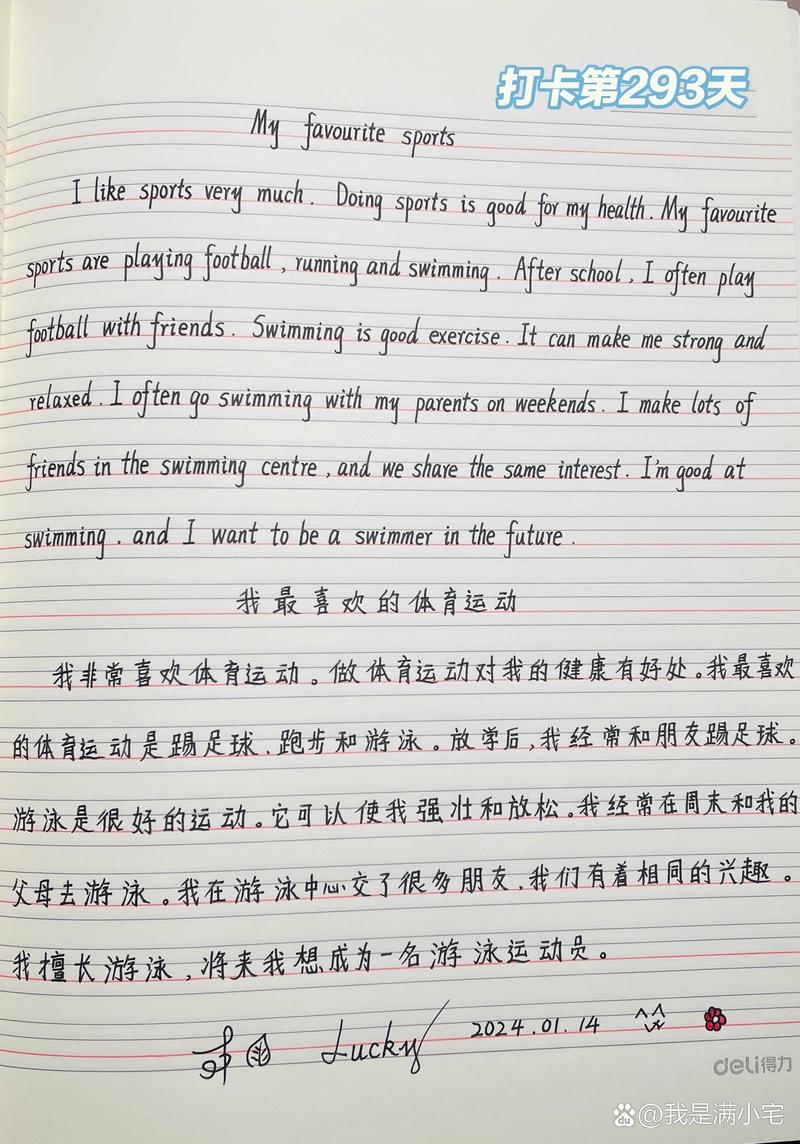 打卡第293天
My favourite sports
I like sports very much. Doing sports is good for my health. My favourite
sports are playing football, running and swimming. After school, I often play
football with friends. Swimming is good exercise. It can make me strong and
relaxed. I often go swimming with my parents on weekends. I make lots of
friends in the swimming centre, and we share the same interest. I'm good at
swimming, and I want to be a swimmer in the future.
我最喜欢的体育运动
我非常喜欢体育运动。做体育运动对我的健康有好处。我最喜欢
的体育运动是踢足球、跑步和游泳。放学后,我经常和朋友踢足球。
游泳是很好的运动。它可以使我强壮和放松。我经常在周末和我的
父母去游泳。我在游泳中心交了很多朋友,我们有着相同的兴趣。
我擅长游泳,将来我想成为一名游泳运动员。
Lucky 2024.01.14
deli得力
du @我是满小宅